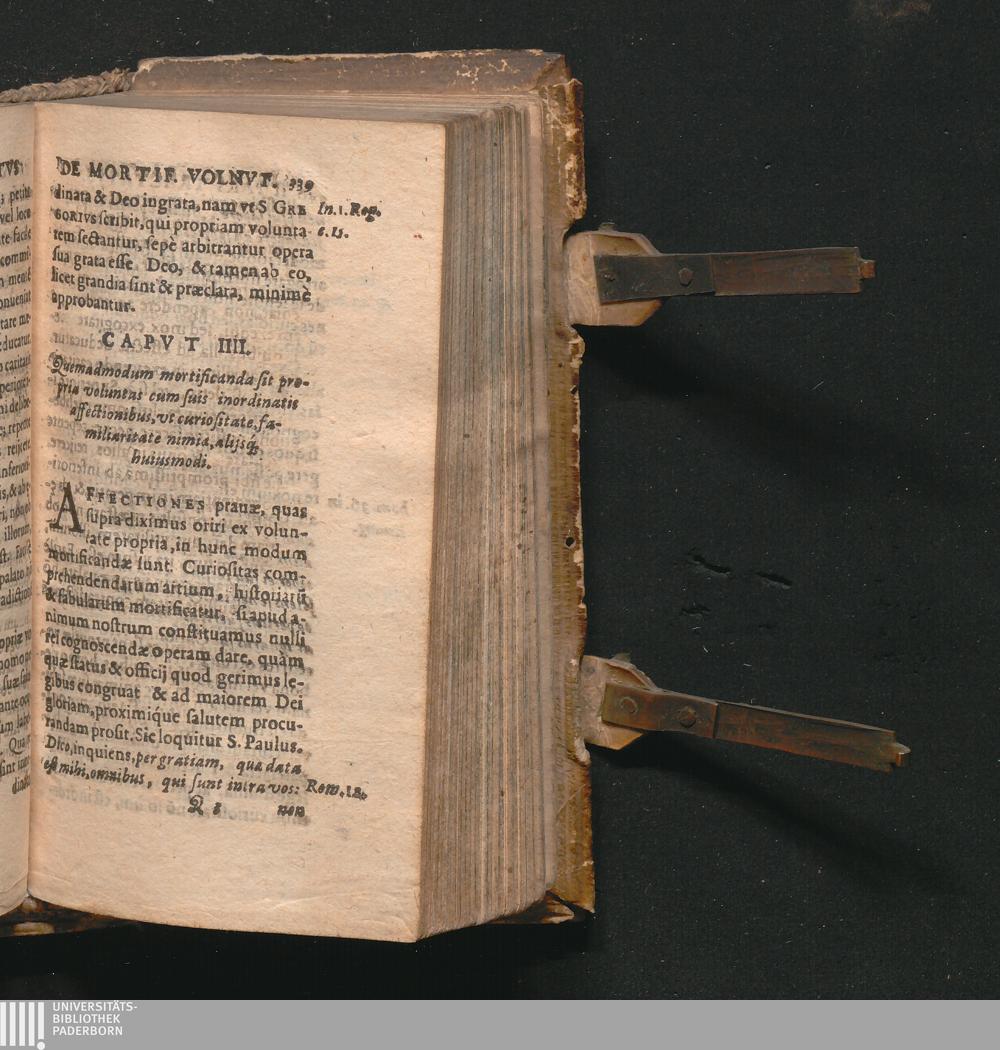 DE MORTIF. VOLNVT. 339
dinata & Deo ingrata, nam vt S GRE In. 1. Reg.
GORIVS scribit, qui propriam volunta 6. 15.
tem sectantur, sepè arbitrantur opera
sua grata esse Deo, & tamen ab eo,
licet grandia sint & præclara, minimè
approbantur.
CAPVT IIII.
Quemadmodum mortificanda sit pro-
pria voluntas cum suis inordinatis
affectionibus, vt curiositate, fa-
miliaritate nimia, alijsq;
huiusmodi.
AFFECTIONES prauæ, quas
supra diximus oriri ex volun-
tate propria, in hunc modum
mortificandæ sunt. Curiositas com-
prehendendarum artium, historiarũ,
& fabularum mortificatur, si apud a-
nimum nostrum constituamus nulli
rei cognoscendæ operam dare, quàm
quæ status & officij quod gerimus le-
gibus congruat & ad maiorem Dei
gloriam, proximique salutem procu-
randam prosit. Sic loquitur S. Paulus.
Dico, inquiens, per gratiam, quæ data
est mihi, omnibus, qui sunt intra vos: Rom. 12.
Q 8 non
TVS
; petitu
vel loco
te facile
tare me-
caritati
illorum,
palato
Qua
UNIVERSITÄTS-
BIBLIOTHEK
PADERBORN